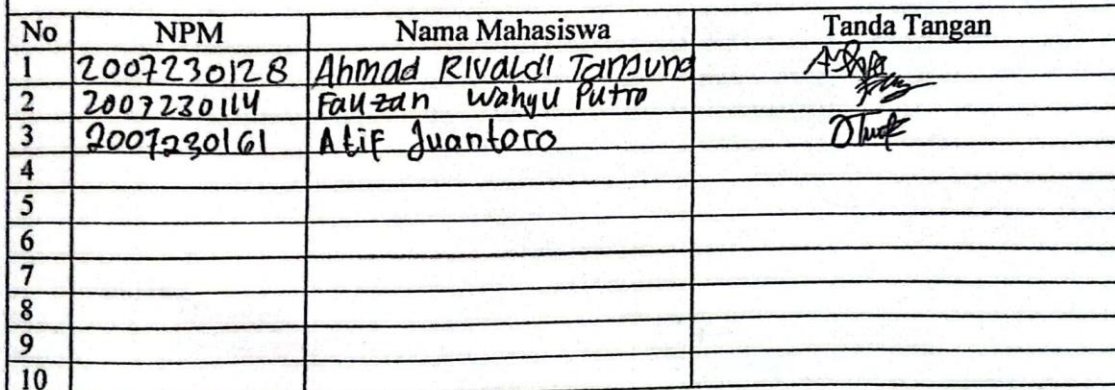 No NPM Nama Mahasiswa Tanda Tangan
1 2007230128 Ahmad Rivaldi Tanjung
2 2007230114 Fauzan Wahyu Putro
3 2007230161 Atif Juantoro
4
5
6
7
8
9
10